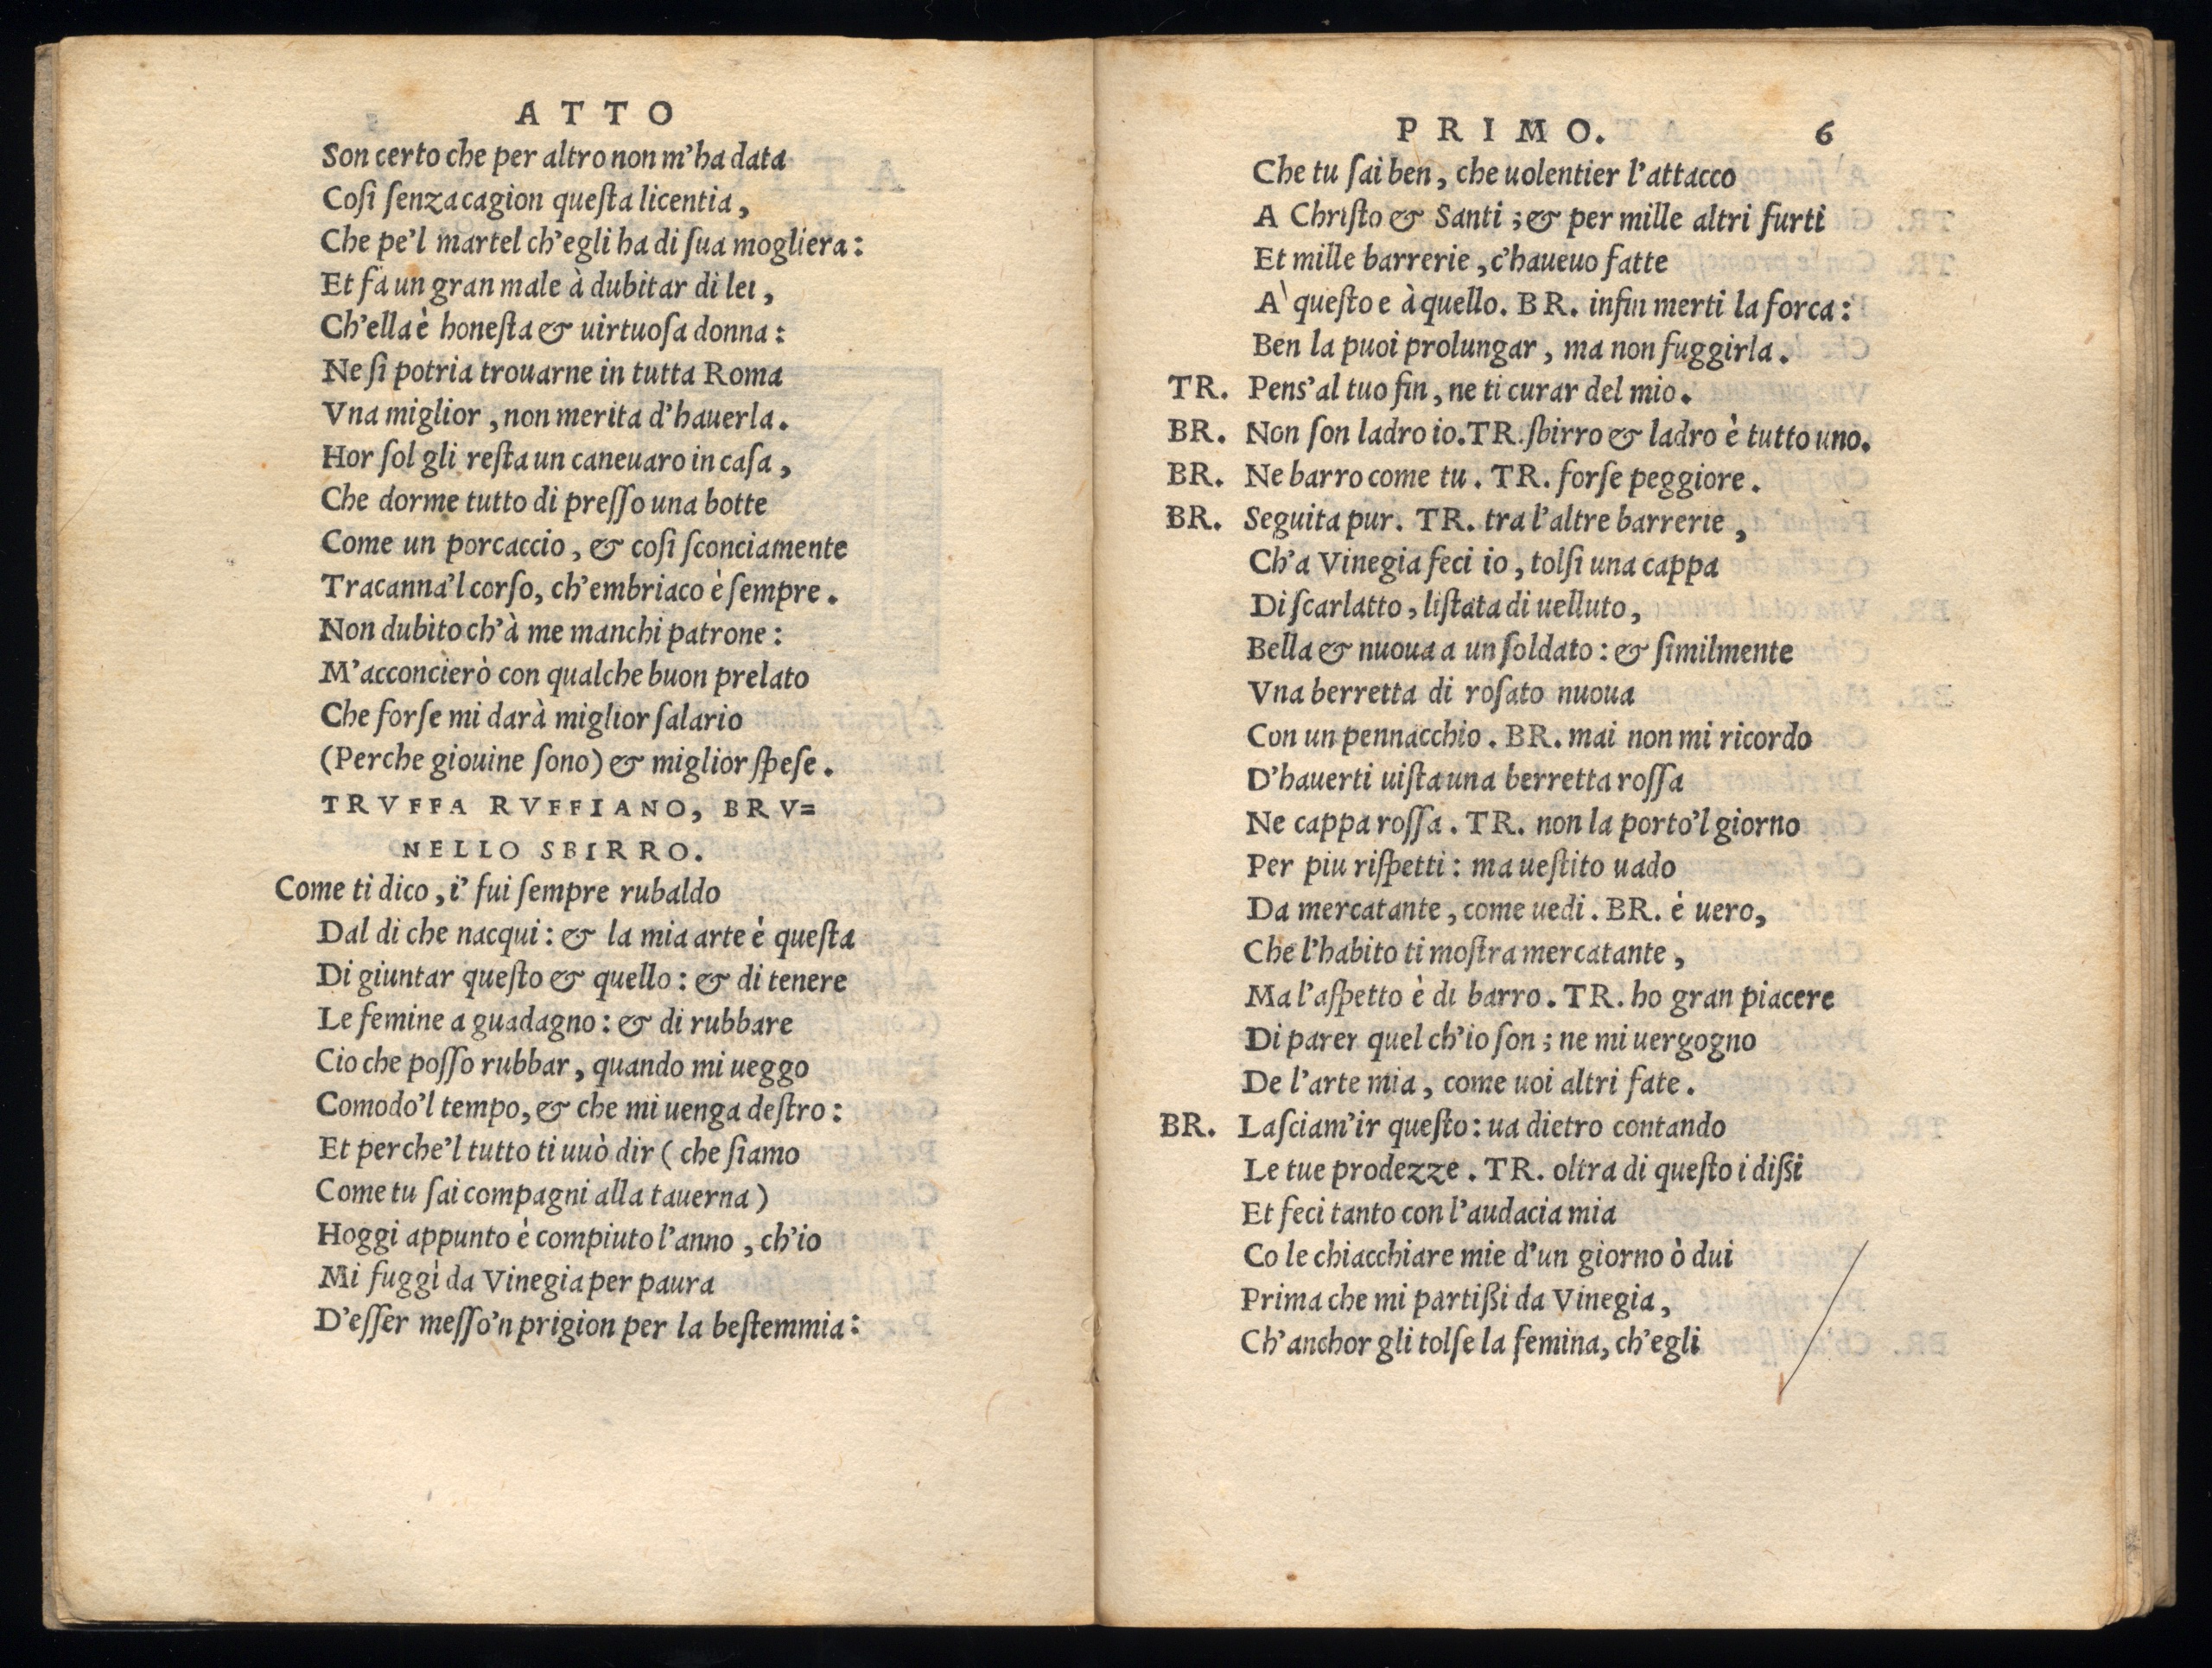 ATTO
Son certo che per altro non m'ha data
Coſi ſenza cagion queſta licentia,
Che pe'l martel ch'egli ha di ſua mogliera:
Et fà un gran male à dubitar di lei,
Ch'ella è honeſta & uirtuoſa donna:
Ne ſi potria trouarne in tutta Roma
Vna miglior, non merita d'hauerla.
Hor ſol gli reſta un caneuaro in caſa,
Che dorme tutto di preſſo una botte
Come un porcaccio, & coſi ſconciamente
Tracanna'l corſo, ch'embriaco è ſempre.
Non dubito ch'à me manchi patrone:
M'acconcierò con qualche buon prelato
Che forſe mi darà miglior ſalario
(Perche giouine ſono) & miglior ſpeſe.
TRVFFA RVFFIANO, BRV=
NELLO SBIRRO.
Come ti dico, i' fui ſempre rubaldo
Dal di che nacqui: & la mia arte è queſta
Di giuntar queſto & quello: & di tenere
Le femine a guadagno: & di rubbare
Cio che poſſo rubbar, quando mi ueggo
Comodo'l tempo, & che mi uenga deſtro:
Et perche'l tutto ti uuò dir (che ſiamo
Come tu ſai compagni alla tauerna)
Hoggi appunto è compiuto l'anno, ch'io
Mi fuggì da Vinegia per paura
D'eſſer meſſo'n prigion per la beſtemmia:
PRIMO. 6
Che tu ſai ben, che uolentier l'attacco
A Chriſto & Santi; & per mille altri furti
Et mille barrerie, c'haueuo fatte
A' queſto e à quello. BR. infin merti la forca:
Ben la puoi prolungar, ma non fuggirla.
TR. Pens'al tuo fin, ne ti curar del mio.
BR. Non ſon ladro io. TR. ſbirro & ladro è tutto uno.
BR. Ne barro come tu. TR. forſe peggiore.
BR. Seguita pur. TR. tra l'altre barrerie,
Ch'a Vinegia feci io, tolſi una cappa
Di ſcarlatto, liſtata di uelluto,
Bella & nuoua a un ſoldato: & ſimilmente
Vna berretta di roſato nuoua
Con un pennacchio. BR. mai non mi ricordo
D'hauerti uiſta una berretta roſſa
Ne cappa roſſa. TR. non la porto'l giorno
Per piu riſpetti: ma ueſtito uado
Da mercatante, come uedi. BR. è uero,
Che l'habito ti moſtra mercatante,
Ma l'aſpetto è di barro. TR. ho gran piacere
Di parer quel ch'io ſon; ne mi uergogno
De l'arte mia, come uoi altri fate.
BR. Laſciam'ir queſto: ua dietro contando
Le tue prodezze. TR. oltra di queſto i diſſi
Et feci tanto con l'audacia mia
Co le chiacchiare mie d'un giorno ò dui
Prima che mi partiſſi da Vinegia,
Ch'anchor gli tolſe la femina, ch'egli